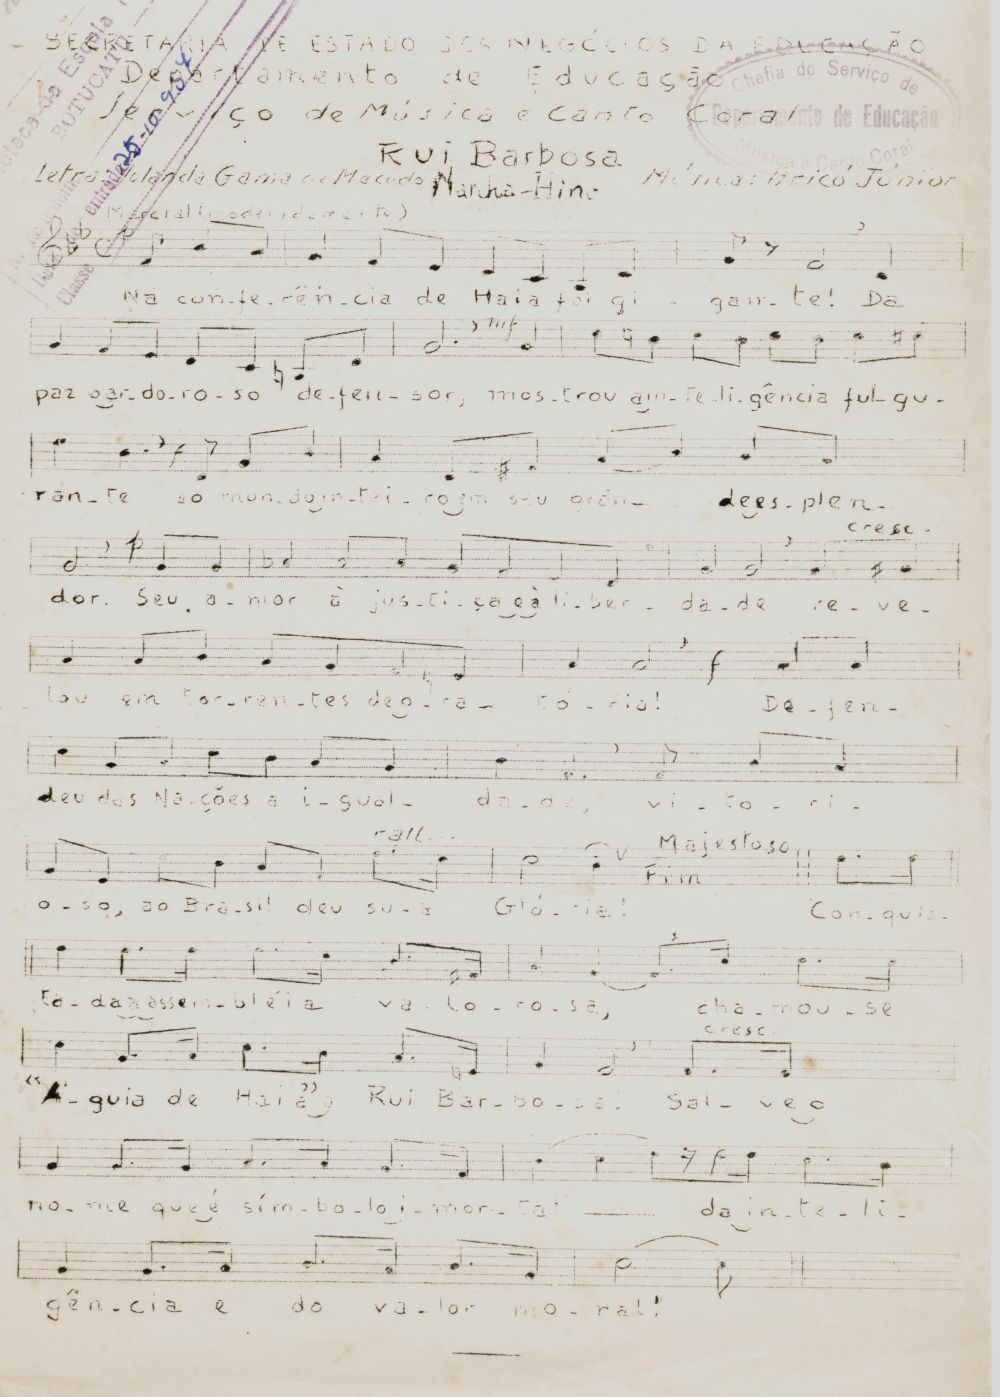 SECRETARIA DE ESTADO DOS NEGÓCIOS DA EDUCAÇÃO
Departamento de Educação
Serviço de Música e Canto Coral
Chefia do Serviço de
Departamento de Educação
Música e Canto Coral
BOTUCATU
entrada
Classe
Rui Barbosa
Letra: Iolanda Gama de Macedo Marcha-Hino Música: Aricó Júnior
Marcial (moderadamente)
Na con-fe-rên-cia de Haia foi gi - gan-te! Da
mf
paz oar-do-ro-so de-fen-sor, mos-trou ain-te-li-gência ful-gu-
f
ran-te ao mun-do in-tei-ro em seu gran- dees-plen-
cresc.
p
dor. Seu a-mor à jus-ti-ça e à li-ber-da-de re-ve-
f
lou em tor-ren-tes de o-ra-tó-ria! De-fen-
deu das Na-ções a i-gual-da-de, vi-to-ri-
rall... Majestoso
Fim
o-so, ao Bra-sil deu su-a Gló-ria! Con-quis-
3
ta-da a assem-bléia va-lo-ro-sa, cha-mou-se
cresc.
"Á-guia de Haia" Rui Bar-bo-sa! Sal-ve o
f
no-me que é sím-bo-lo i-mor-tal da in-te-li-
gên-cia e do va-lor mo-ral!